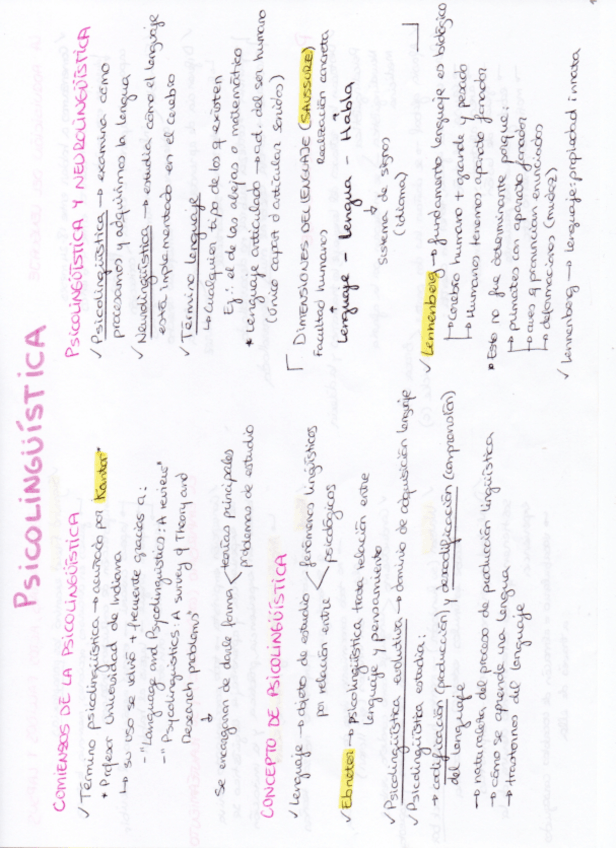 PSICOLINGÜÍSTICA
COMIENZOS DE LA PSICOLINGÜÍSTICA
✓ Término psicolingüística → acuñado por Kantor*
* Profesor Universidad de Indiana
↳ su uso se volvió + frecuente gracias a:
-"Language and Psycolinguistics: A review"
-"Psycolinguistics: A survey of Theory and
Research problems"
↓
se encargaron de darle forma < teorías principales
problemas de estudio
CONCEPTO DE PSICOLINGÜÍSTICA
✓ Lenguaje → objeto de estudio < fenómenos lingüísticos
por relación entre psicológicos
✓ Ebneter → psicolingüística trata relación entre
lenguaje y pensamiento
✓ Psicolingüística evolutiva → dominio de adquisición lenguaje
✓ Psicolingüística estudia:
→ codificación (producción) y decodificación (comprensión)
del lenguaje
→ naturaleza del proceso de producción lingüística
→ cómo se aprende una lengua
→ trastornos del lenguaje
PSICOLINGÜÍSTICA Y NEUROLINGÜÍSTICA
✓ Psicolingüística → examina cómo
procesamos y adquirimos la lengua
✓ Neurolingüística → estudia cómo el lenguaje
está implementado en el cerebro
✓ Término lenguaje
↳ Cualquier tipo de los q existen
Ej: el de las abejas o matemático
* Lenguaje articulado → ad. del ser humano
(único capaz d articular sonidos)
DIMENSIONES DEL LENGUAJE (SAUSSURE)
Facultad humanos realización concreta
↑ ↑
Lenguaje - Lengua - Habla
↓
Sistema de signos
(idioma)
✓ Lenneberg → fundamento lenguaje es biológico
→ cerebro humano + grande y pesado
→ Humanos tenemos aparato fonador
* Esto no fue determinante porque:
→ primates con aparato fonador
→ aves q pronuncian enunciados
→ deformaciones (mudez)
✓ Lenneberg → lenguaje: propiedad innata